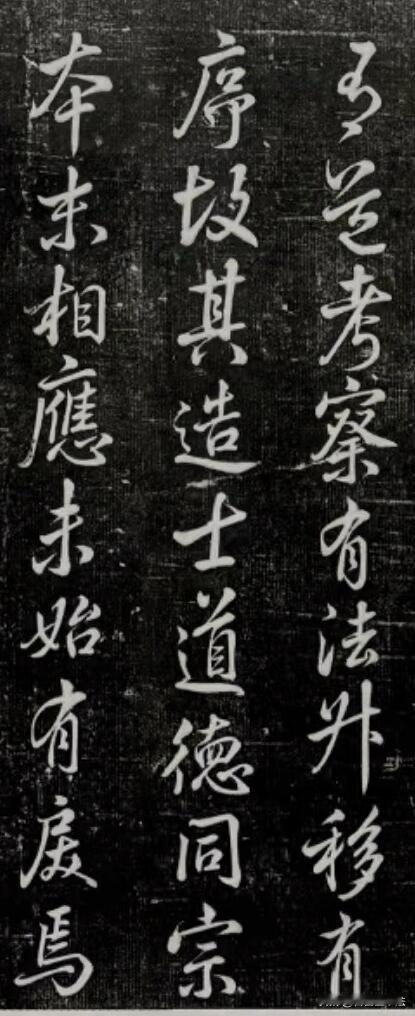 有道考察有法升移有
序故其造士道德同宗
本末相應未始有戾焉